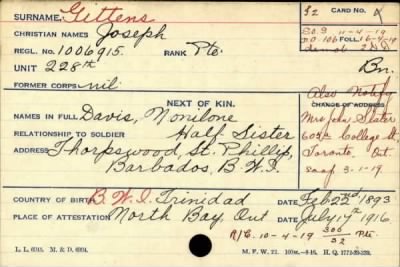 SURNAME. Gittens 32 CARD NO. A
CHRISTIAN NAMES Joseph S.O.S. 11-4-19
REGL. NO. 1006915. RANK Pte. D.O.106 FOLL. 16-4-19
demob 2 D.D.
UNIT 228th Bn.
FORMER CORPS. nil
Also Notify
NEXT OF KIN. CHANGE OF ADDRESS
NAMES IN FULL Davis, Monilone Mrs John Slater
RELATIONSHIP TO SOLDIER Half Sister 605a College St,
ADDRESS Thorpswood, St. Phillip, Toronto, Ont.
Barbados, B.W.I. 3-1-19
COUNTRY OF BIRTH B.W.I. Trinidad DATE Feb 22nd 1893
PLACE OF ATTESTATION North Bay, Ont DATE July 17th 1916
R/C. 10-4-19 300/32 Pte.
L. L. M. & D. M. F. W. 22. H. Q. 1772-39-339.